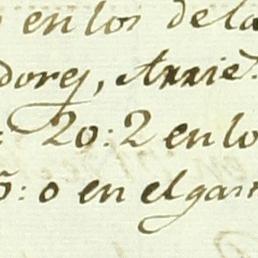 en los de la
dores, Arrie
20:2 en lo
0:0 en el gas